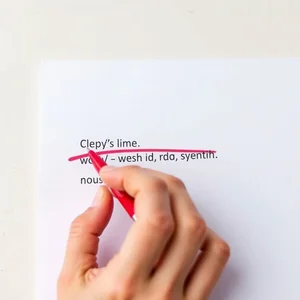 Clepy's lime.
– wesh id, rda, syentih.
nous